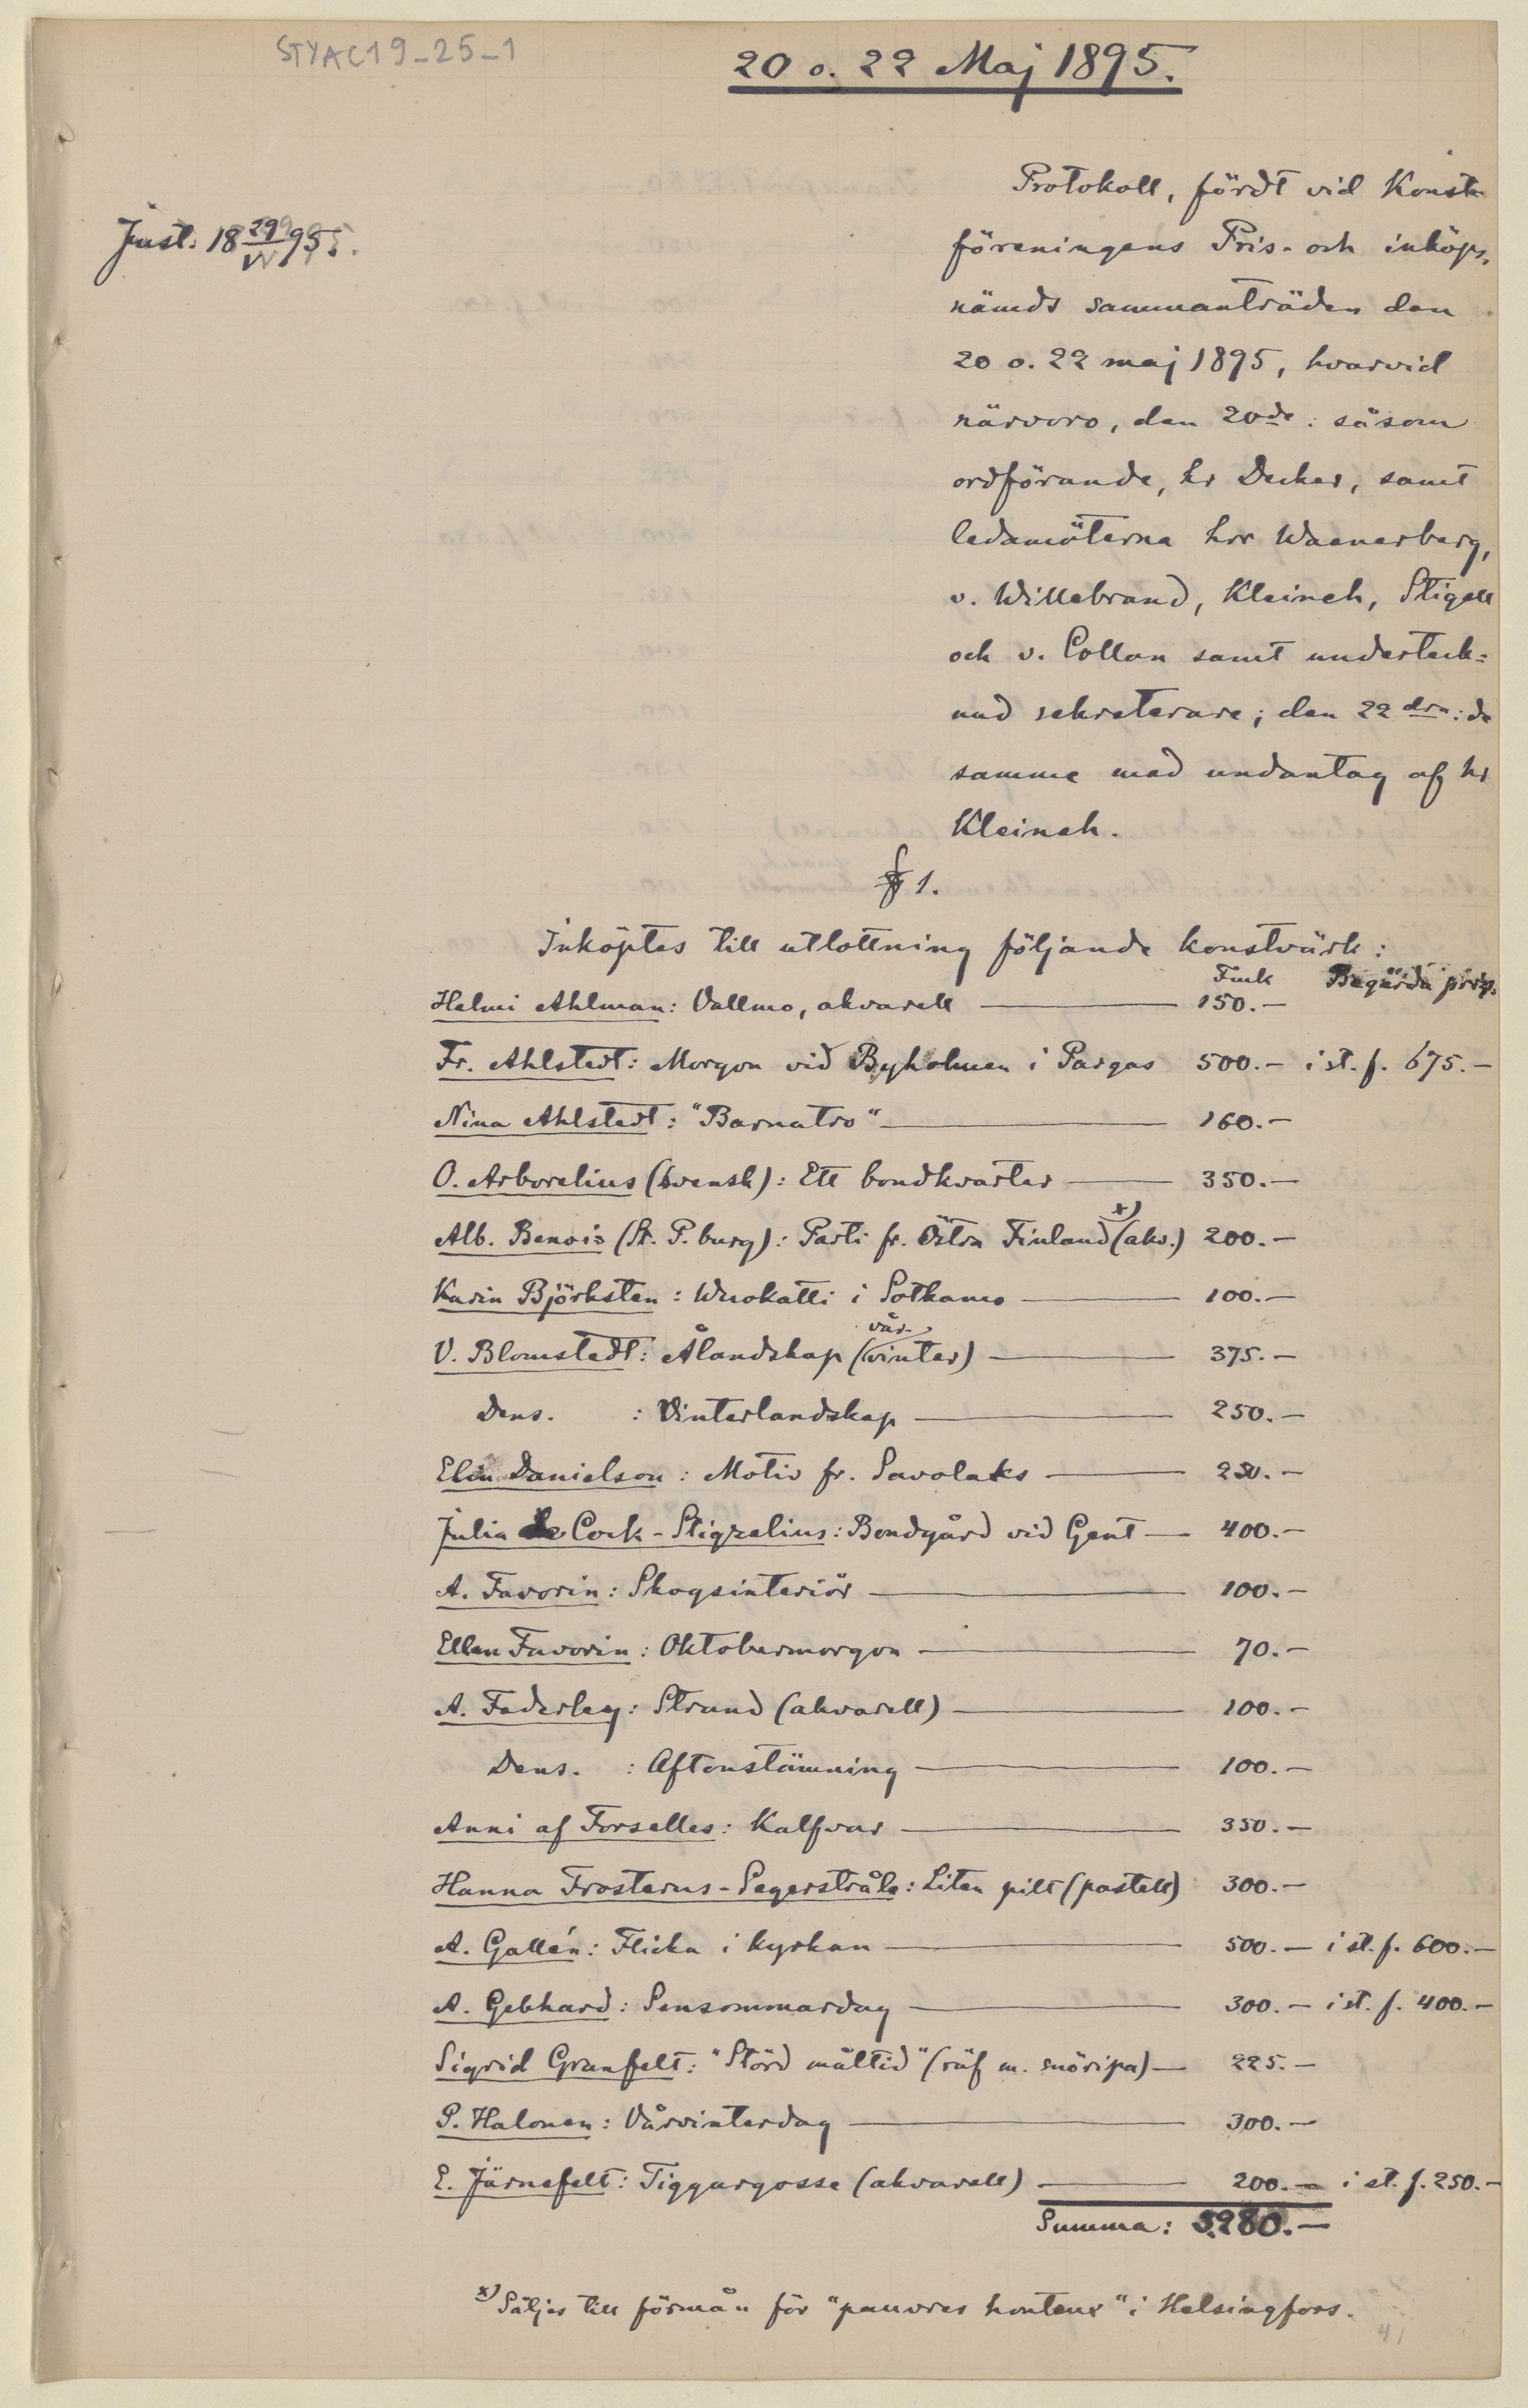 STYAC19-25-1
20 o. 22 Maj 1895.
Just: 18 29/V 95.
Protokoll, fördt vid Konst-
föreningens Pris- och inköps-
nämds sammanträden den
20 o. 22 maj 1895, hvarvid
närvoro, den 20de: såsom
ordförande, hr Decker, samt
ledamöterna hrr Waenerberg,
v. Willebrand, Kleineh, Stigell
och v. Collan samt underteck=
nad sekreterare; den 22dra: de
samme med undantag af hr
Kleineh.
§ 1.
Inköptes till utlottning följande konstvärk:
Fmk Begärda pris.
Helmi Ahlman: Vallmo, akvarell 150.—
Fr. Ahlstedt: Morgon vid Byholmen i Pargas 500.— i st. f. 675.—
Nina Ahlstedt: "Barnatro" 160.—
O. Arborelius (svensk): Ett bondkvarter 350.—
Alb. Benois (St. P.burg): Parti fr. Östra Finland x) (akv.) 200.—
Karin Björksten: Wuokatti i Sotkamo 100.—
V. Blomstedt: Ålandskap (vår-vinter) 375.—
Dens. : Vinterlandskap 250.—
Elin Danielson: Motiv fr. Savolaks 250.—
Julia de Cock-Stigzelius: Bondgård vid Gent 400.—
A. Favorin: Skogsinteriör 100.—
Ellen Favorin: Oktobermorgon 70.—
A. Federley: Strand (akvarell) 100.—
Dens. : Aftonstämning 100.—
Anni af Forselles: Kalfvar 350.—
Hanna Frosterus-Segerstråle: Liten pilt (pastell) 300.—
A. Gallén: Flicka i kyrkan 500.— i st. f. 600.—
A. Gebhard: Sensommardag 300.— i st. f. 400.—
Sigrid Granfelt: "Störd måltid" (räf m. snöripa) 225.—
P. Halonen: Vårvinterdag 300.—
E. Järnefelt: Tiggargosse (akvarell) 200.— i st. f. 250.—
Summa: 5280.—
x) Säljes till förmån för "pauvres honteux" i Helsingfors.
41